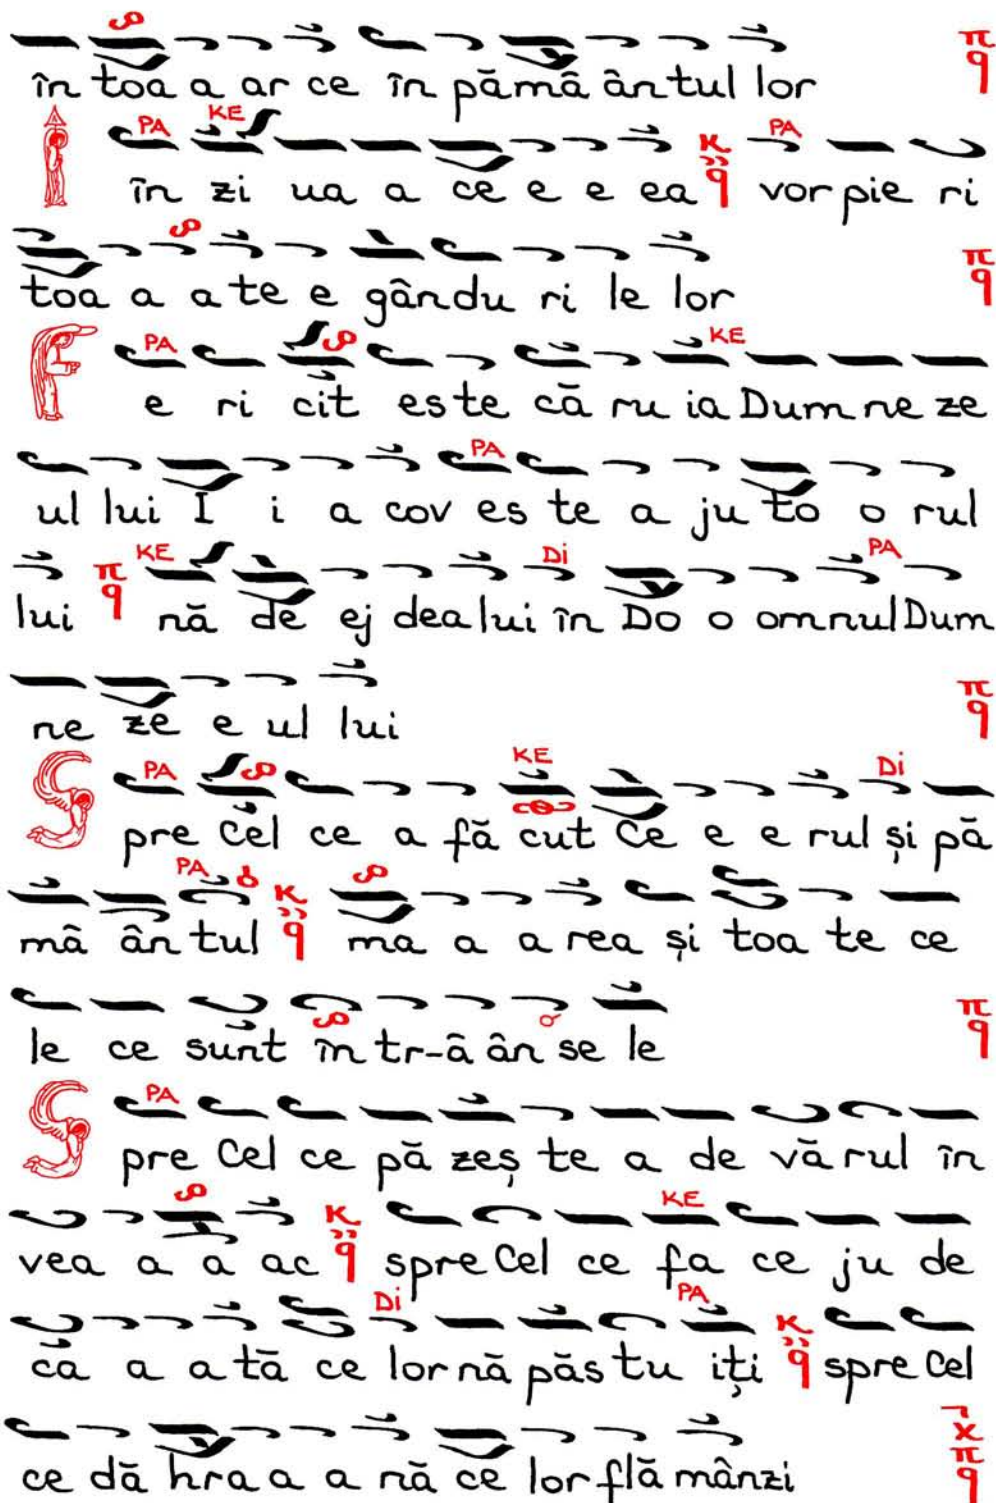 în toa a ar ce în pămâ ân tul lor π q
PA KE PA
Î în zi ua a ce e e ea K q vor pie ri
toa a a te e gându ri le lor π q
PA KE
F e ri cit este că ru ia Dumne ze
PA
ul lui I i a cov es te a ju to o rul
KE Di PA
lui π q nă de ej dea lui în Do o omnul Dum
ne ze e ul lui π q
PA KE Di
S pre Cel ce a fă cut Ce e e rul și pă
PA
mâ ân tul K q ma a a rea și toa te ce
le ce sunt în tr-â ân se le π q
PA
S pre Cel ce pă zeș te a de vă rul în
KE
vea a a ac K q spre Cel ce fa ce ju de
Di PA
ca a a tă ce lor nă păs tu iți K q spre Cel
ce dă hra a a nă ce lor flă mânzi x π q